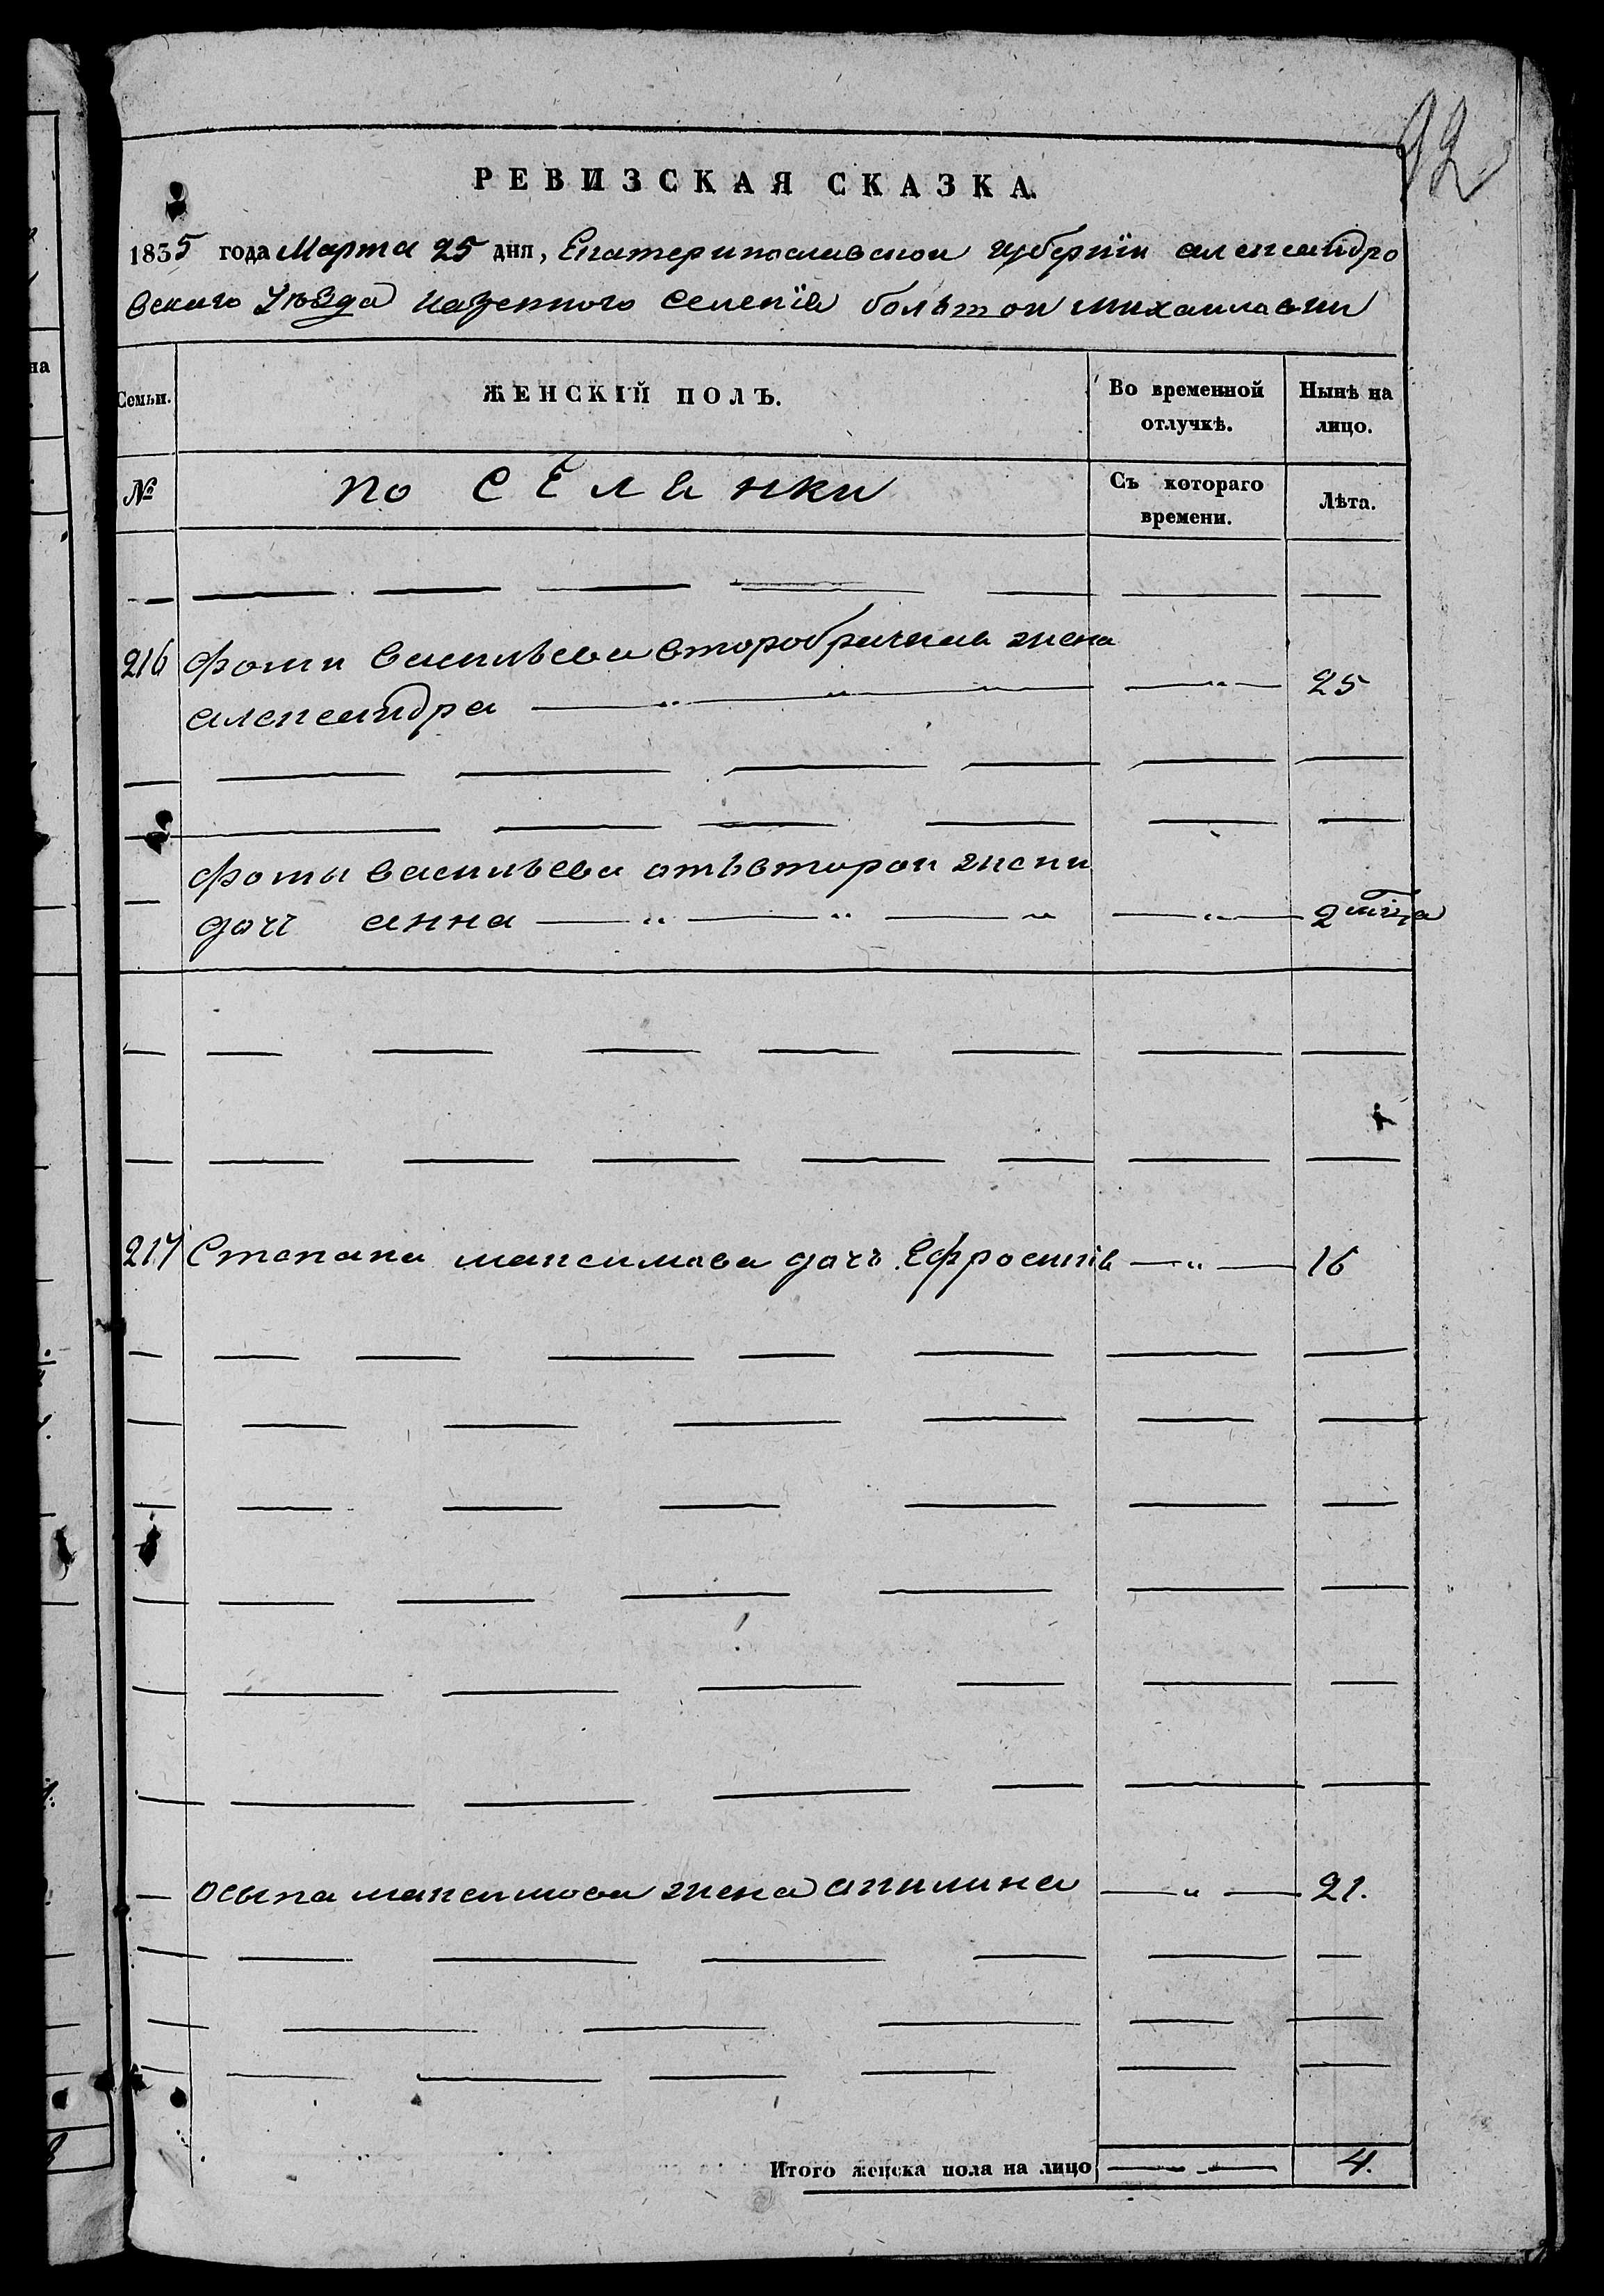 92
РЕВИЗСКАЯ СКАЗКА.
1835 года Марта 25 дня, Екатеринославскои губернїи александро
вскаго Уѣзда казенного селенїя больтои михаиловки
Семьи. ЖЕНСКІЙ ПОЛЪ. Во временной отлучкѣ. Нынѣ на лицо.
№ поСЕлянки Съ котораго времени. Лѣта.
216 фоми васильева второбрачная жена
александра 25
фомы васильева отъ второи жени
дочь анна 2 мца
217 Степана максимова дочь Ефросинїя 16
осыпа максимова жена акилина 21.
Итого женска пола на лицо 4.